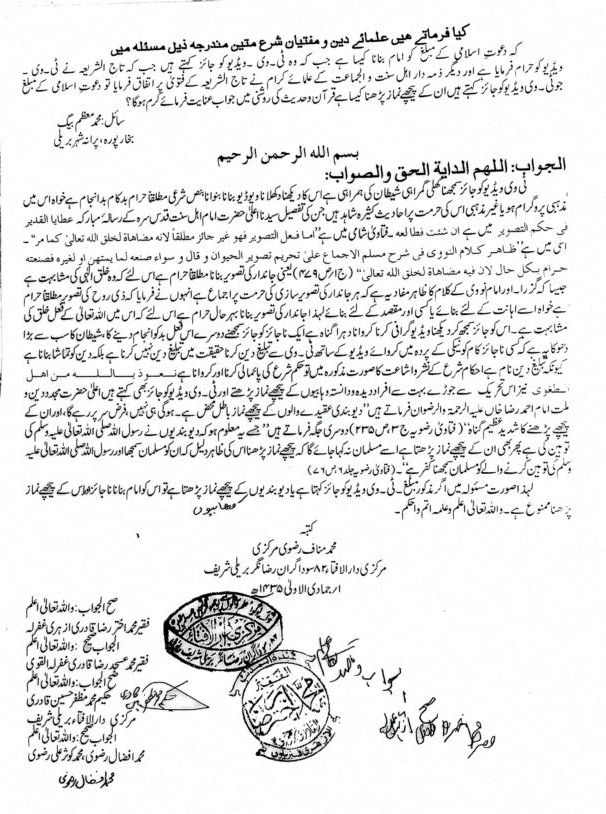 کیا فرماتے ہیں علمائے دین و مفتیان شرع متین مندرجہ ذیل مسئلہ میں
کہ دعوت اسلامی کے مبلغ کو امام بنانا کیسا ہے جب کہ وہ ٹی۔وی۔ ویڈیو کو جائز کہتے ہیں جب کہ تاج الشریعہ نے ٹی۔وی۔
ویڈیو کو حرام فرمایا ہے اور دیگر ذمہ دار اہل سنت والجماعت کے علمائے کرام نے تاج الشریعہ کے فتویٰ پر اتفاق فرمایا تو دعوت اسلامی کے مبلغ
جو ٹی۔وی ویڈیو کو جائز کہتے ہیں ان کے پیچھے نماز پڑھنا کیسا ہے قرآن وحدیث کی روشنی میں جواب عنایت فرمائے کرم ہوگا؟
سائل: محمد معظم بیگ
بخار پورہ، پرانہ شہر بریلی
بسم الله الرحمن الرحيم
الجواب: اللهم الداية الحق والصواب:
ٹی وی ویڈیو کو جائز سمجھنا کھلی گمراہی شیطان کی ہمراہی ہے اس کا دیکھنا دکھلانا ویڈیو بنانا بنوانا بنص شرعی مطلقا حرام بدکام بدانجام ہے خواہ اس میں
مذہبی پروگرام ہو یا غیر مذہبی اس کی حرمت پر احادیث کثیرہ شاہد ہیں جن کی تفصیل سیدنا اعلیٰ حضرت امام اہل سنت قدس سرہ کے رسالۂ مبارکہ عطایا القدیر
فی حکم التصویر میں ہے ان شئت فطالعه۔ فتاویٰ شامی میں ہے "اما فعل التصوير فهو غير جائز مطلقا لانه مضاهاة لخلق الله تعالىٰ كما مر"۔
اسی میں ہے "ظاهر كلام النووى فى شرح مسلم الاجماع على تحريم تصوير الحيوان و قال و سواء صنعه لما يمتهن او لغيره فصنعته
حرام بكل حال لان فيه مضاهاة لخلق الله تعالىٰ" (ج ارص ۴۷۹) یعنی جاندار کی تصویر بنانا مطلقا حرام ہے اس لئے کہ وہ خلق الٰہی کی مشابہت ہے
جیسا کہ گزرا۔ اور امام نووی کے کلام کا ظاہر مفاد یہ ہے کہ ہر جاندار کی تصویر سازی کی حرمت پر اجماع ہے انہوں نے فرمایا کہ ذی روح کی تصویر مطلقا حرام
ہے خواہ اسے اہانت کے لئے بنائے یا کسی اور مقصد کے لئے بنائے لہذا جاندار کی تصویر بنانا بہر حال حرام ہے اس لئے کہ اس میں اللہ تعالیٰ کے فعل خلق کی
مشابہت ہے۔ اس کو جائز سمجھ کر دیکھنا ویڈیو گرافی کرنا کروانا دہرا گناہ ہے ایک ناجائز کو جائز سمجھنے دوسرے اس فعل بد کو انجام دینے کا، شیطان کا سب سے بڑا
دھوکا یہ ہے کہ کسی ناجائز کام کو نیکی کے پردہ میں کروائے ویڈیو کے ساتھ ٹی۔وی سے تبلیغ دین کرنا حقیقت میں تبلیغ دین نہیں کرنا ہے بلکہ دین کو تماشا بنانا ہے
کیونکہ تبلیغ دین نام ہے احکام شرع کے نشر و اشاعت کا صورت مذکورہ میں تو حکم شرع کی پامالی کرنا اور کروانا ہے نعوذ بالله من اهل
الطغوى نیز اس تحریک سے جوڑے بہت سے افراد دیدہ و دانستہ وہابیوں کے پیچھے نماز پڑھتے اور ٹی۔وی ویڈیو کو جائز بھی کہتے ہیں اعلیٰ حضرت مجدد دین و
ملت امام احمد رضا خاں علیہ الرحمۃ والرضوان فرماتے ہیں "دیوبندی عقیدے والوں کے پیچھے نماز باطل محض ہے۔ ہوگی ہی نہیں، فرض سر پر رہے گا، اور ان کے
پیچھے پڑھنے کا شدید عظیم گناہ" (فتاویٰ رضویہ ج ۳ ص ۲۳۵) دوسری جگہ فرماتے ہیں "جسے یہ معلوم ہو کہ دیوبندیوں نے رسول اللہ صلی اللہ تعالیٰ علیہ وسلم کی
توہین کی ہے پھر بھی ان کے پیچھے نماز پڑھتا ہے اسے مسلمان نہ کہا جائے گا کہ پیچھے نماز پڑھنا اس کی ظاہر دلیل کہ ان کو مسلمان سمجھا اور رسول اللہ صلی اللہ تعالیٰ علیہ
وسلم کی توہین کرنے والے کو مسلمان سمجھنا کفر ہے"۔ (فتاویٰ رضویہ جلد ۶ ص ۷۶)
لہذا صورت مسئولہ میں اگر مذکور مبلغ۔ ٹی۔وی ویڈیو کو جائز کہتا ہے یا دیوبندیوں کے پیچھے نماز پڑھتا ہے تو اس کو امام بنانا ناجائز اور اس کے پیچھے نماز
پڑھنا ممنوع ہے۔ واللہ تعالیٰ اعلم وعلمہ اتم واحکم۔
کتبہ
محمد مناف رضوی مرکزی
مرکزی دارالافتاء ۸۲ سوداگران رضانگر بریلی شریف
۱ر جمادی الاولیٰ ۱۴۳۵ھ
صح الجواب: واللہ تعالیٰ اعلم
فقیر محمد اختر رضا قادری ازہری غفرلہ
الجواب صحیح: واللہ تعالیٰ اعلم
فقیر محمد عسجد رضا قادری غفرلہ القوی
حکیم محمد مظفر حسین قادری
مرکزی دارالافتاء بریلی شریف
الجواب صحیح: واللہ تعالیٰ اعلم
محمد افضال رضوی، محمد کوثر علی رضوی
محمد افضال رضوی
مرکزی دارالافتاء